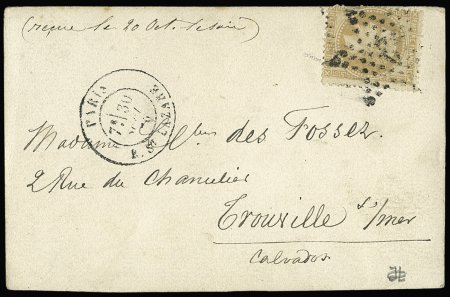 (reçue le 20 Oct. le soir)
PARIS
R. ST LAZARE
7E/30
SEPT
70
Madame des Fossez.
2 Rue du Chancelier
Trouville s/mer
Calvados